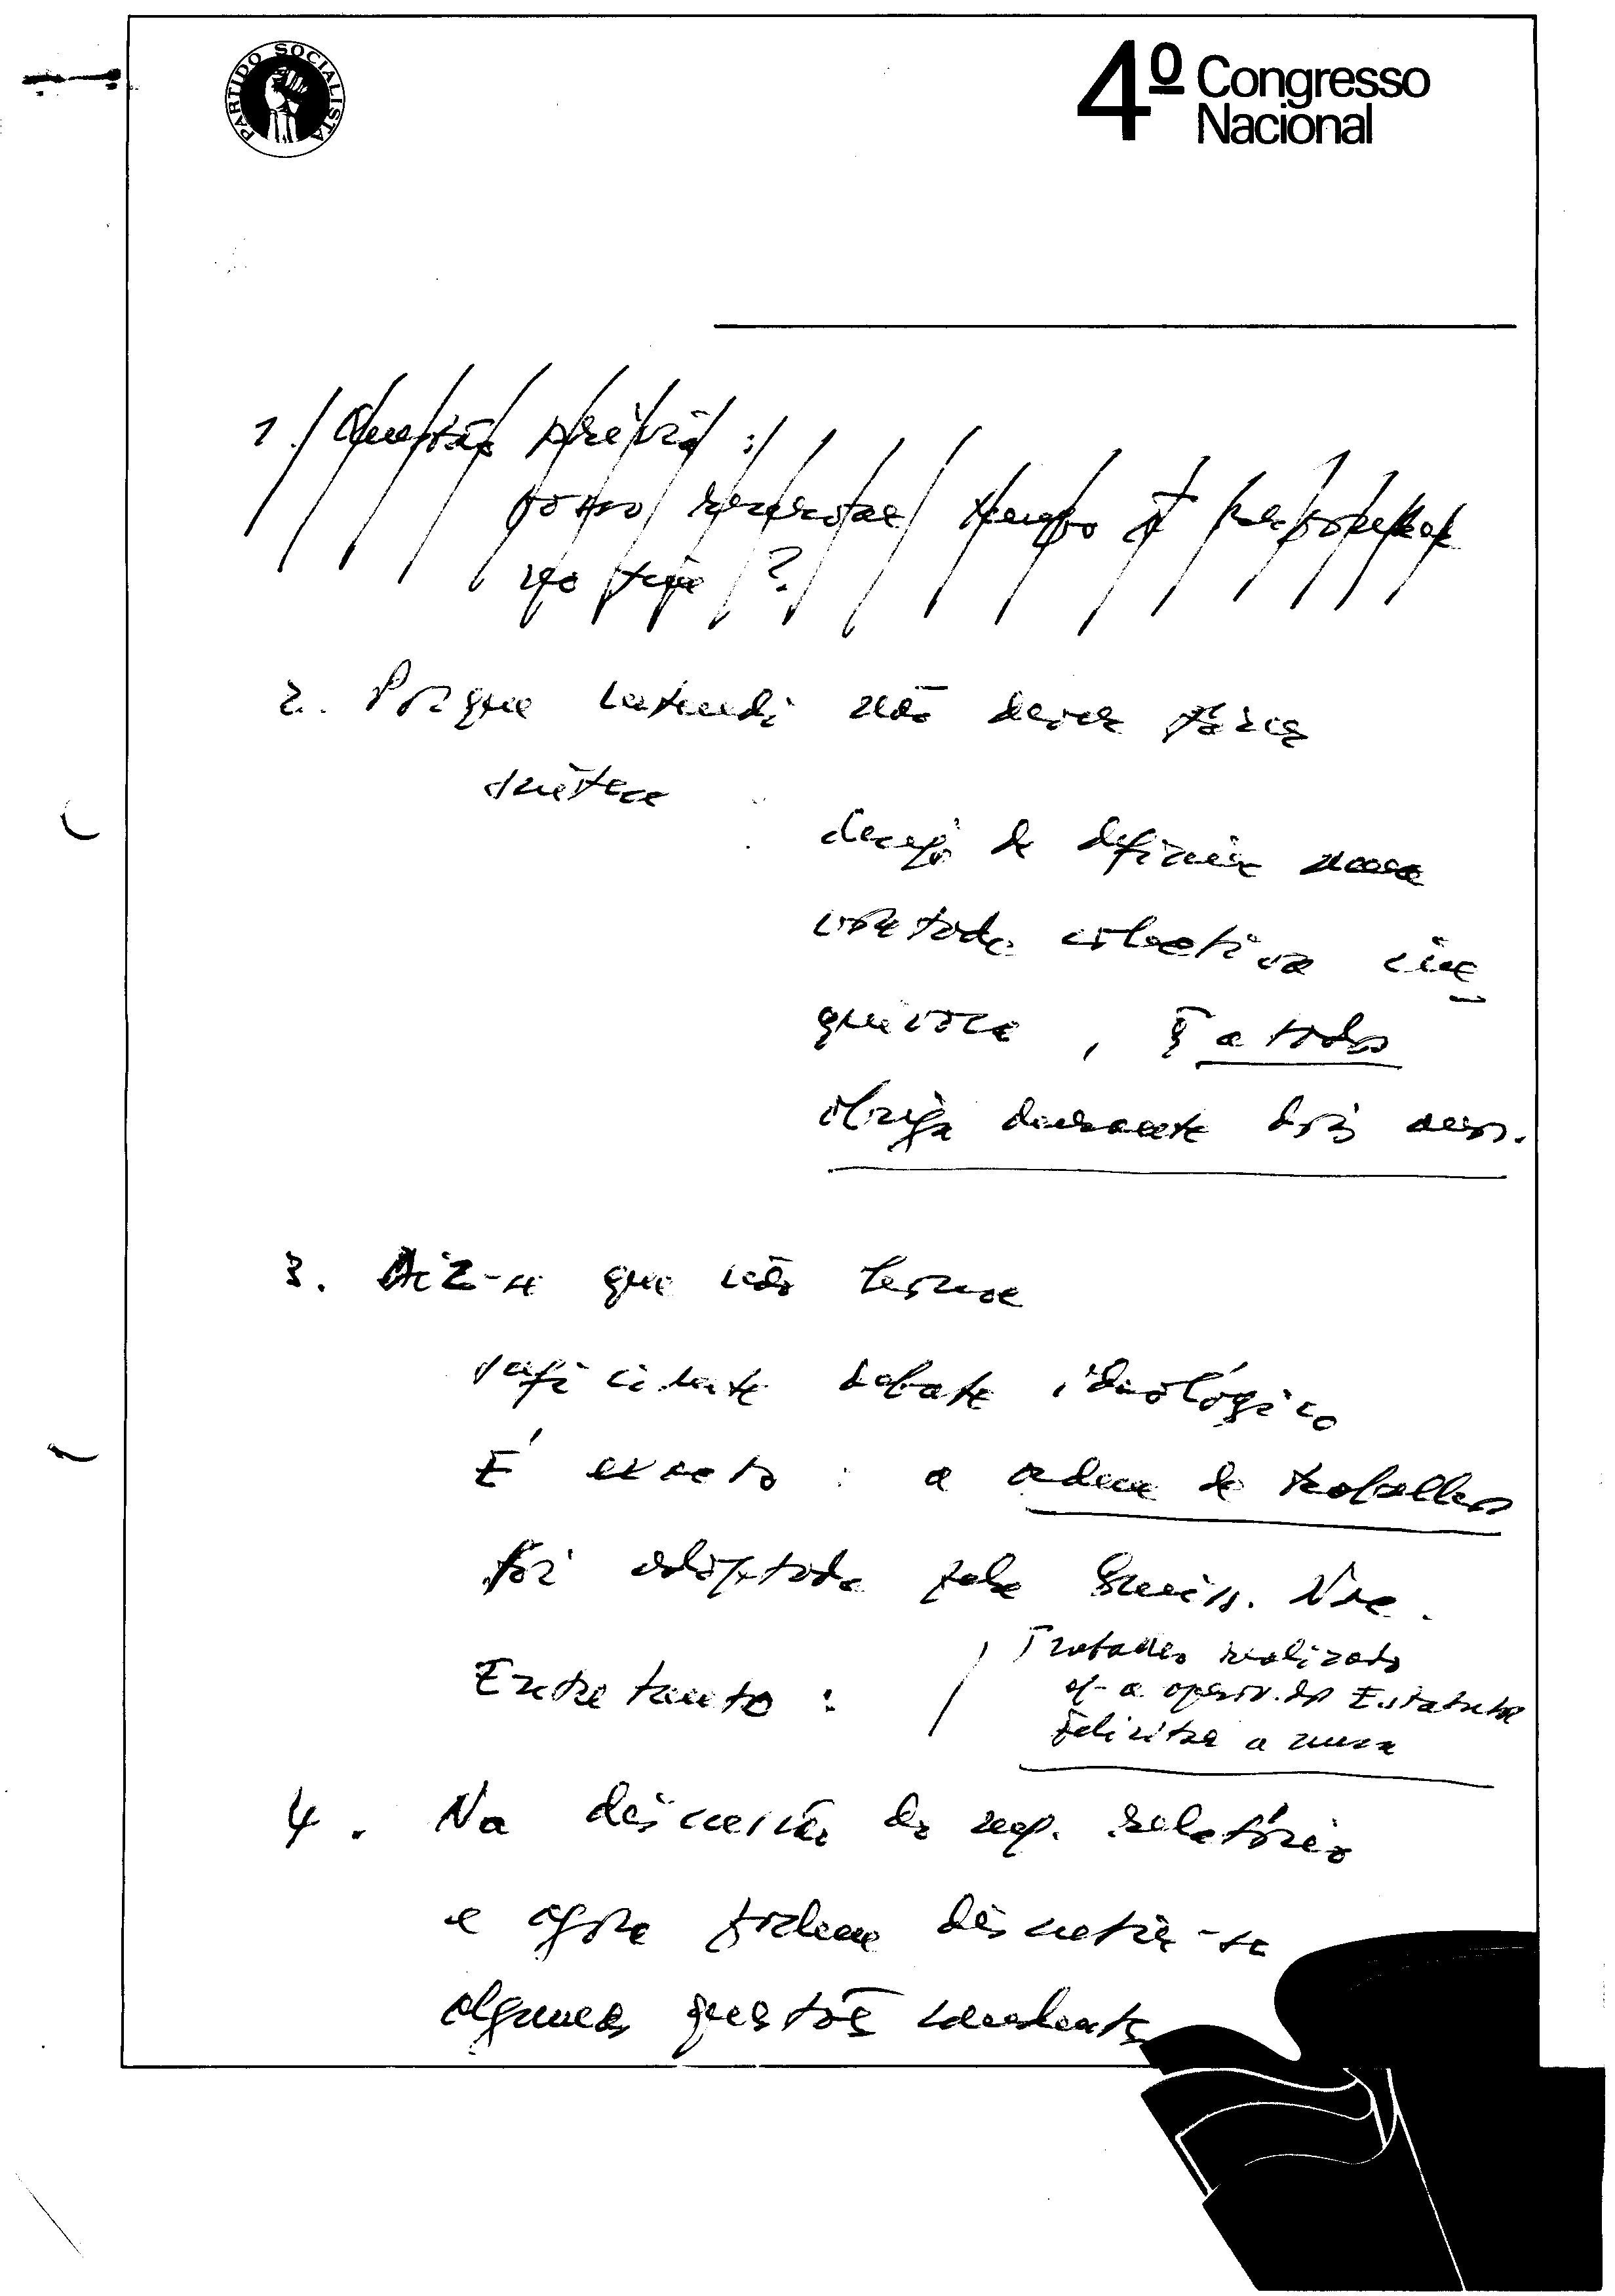 PARTIDO SOCIALISTA
4º Congresso
Nacional
1. Questão prévia:
posso tempo pt responder
?
2. Porque entendi não dever
desejo de definir uma
vontade colectiva ine
quívoca, q̄ a todos
obriga durante dois anos.
3. Diz-se que não houve
suficiente debate ideológico
É exacto: a ordem de trabalhos
foi adoptada pela Comiss. Nac.
Entretanto:
Trabalho realizado
cf- a aprov. do Estatuto
Felicitar a mesa
4. Na discussão do resp. relatório
e agora podem discutir-se
algumas questões